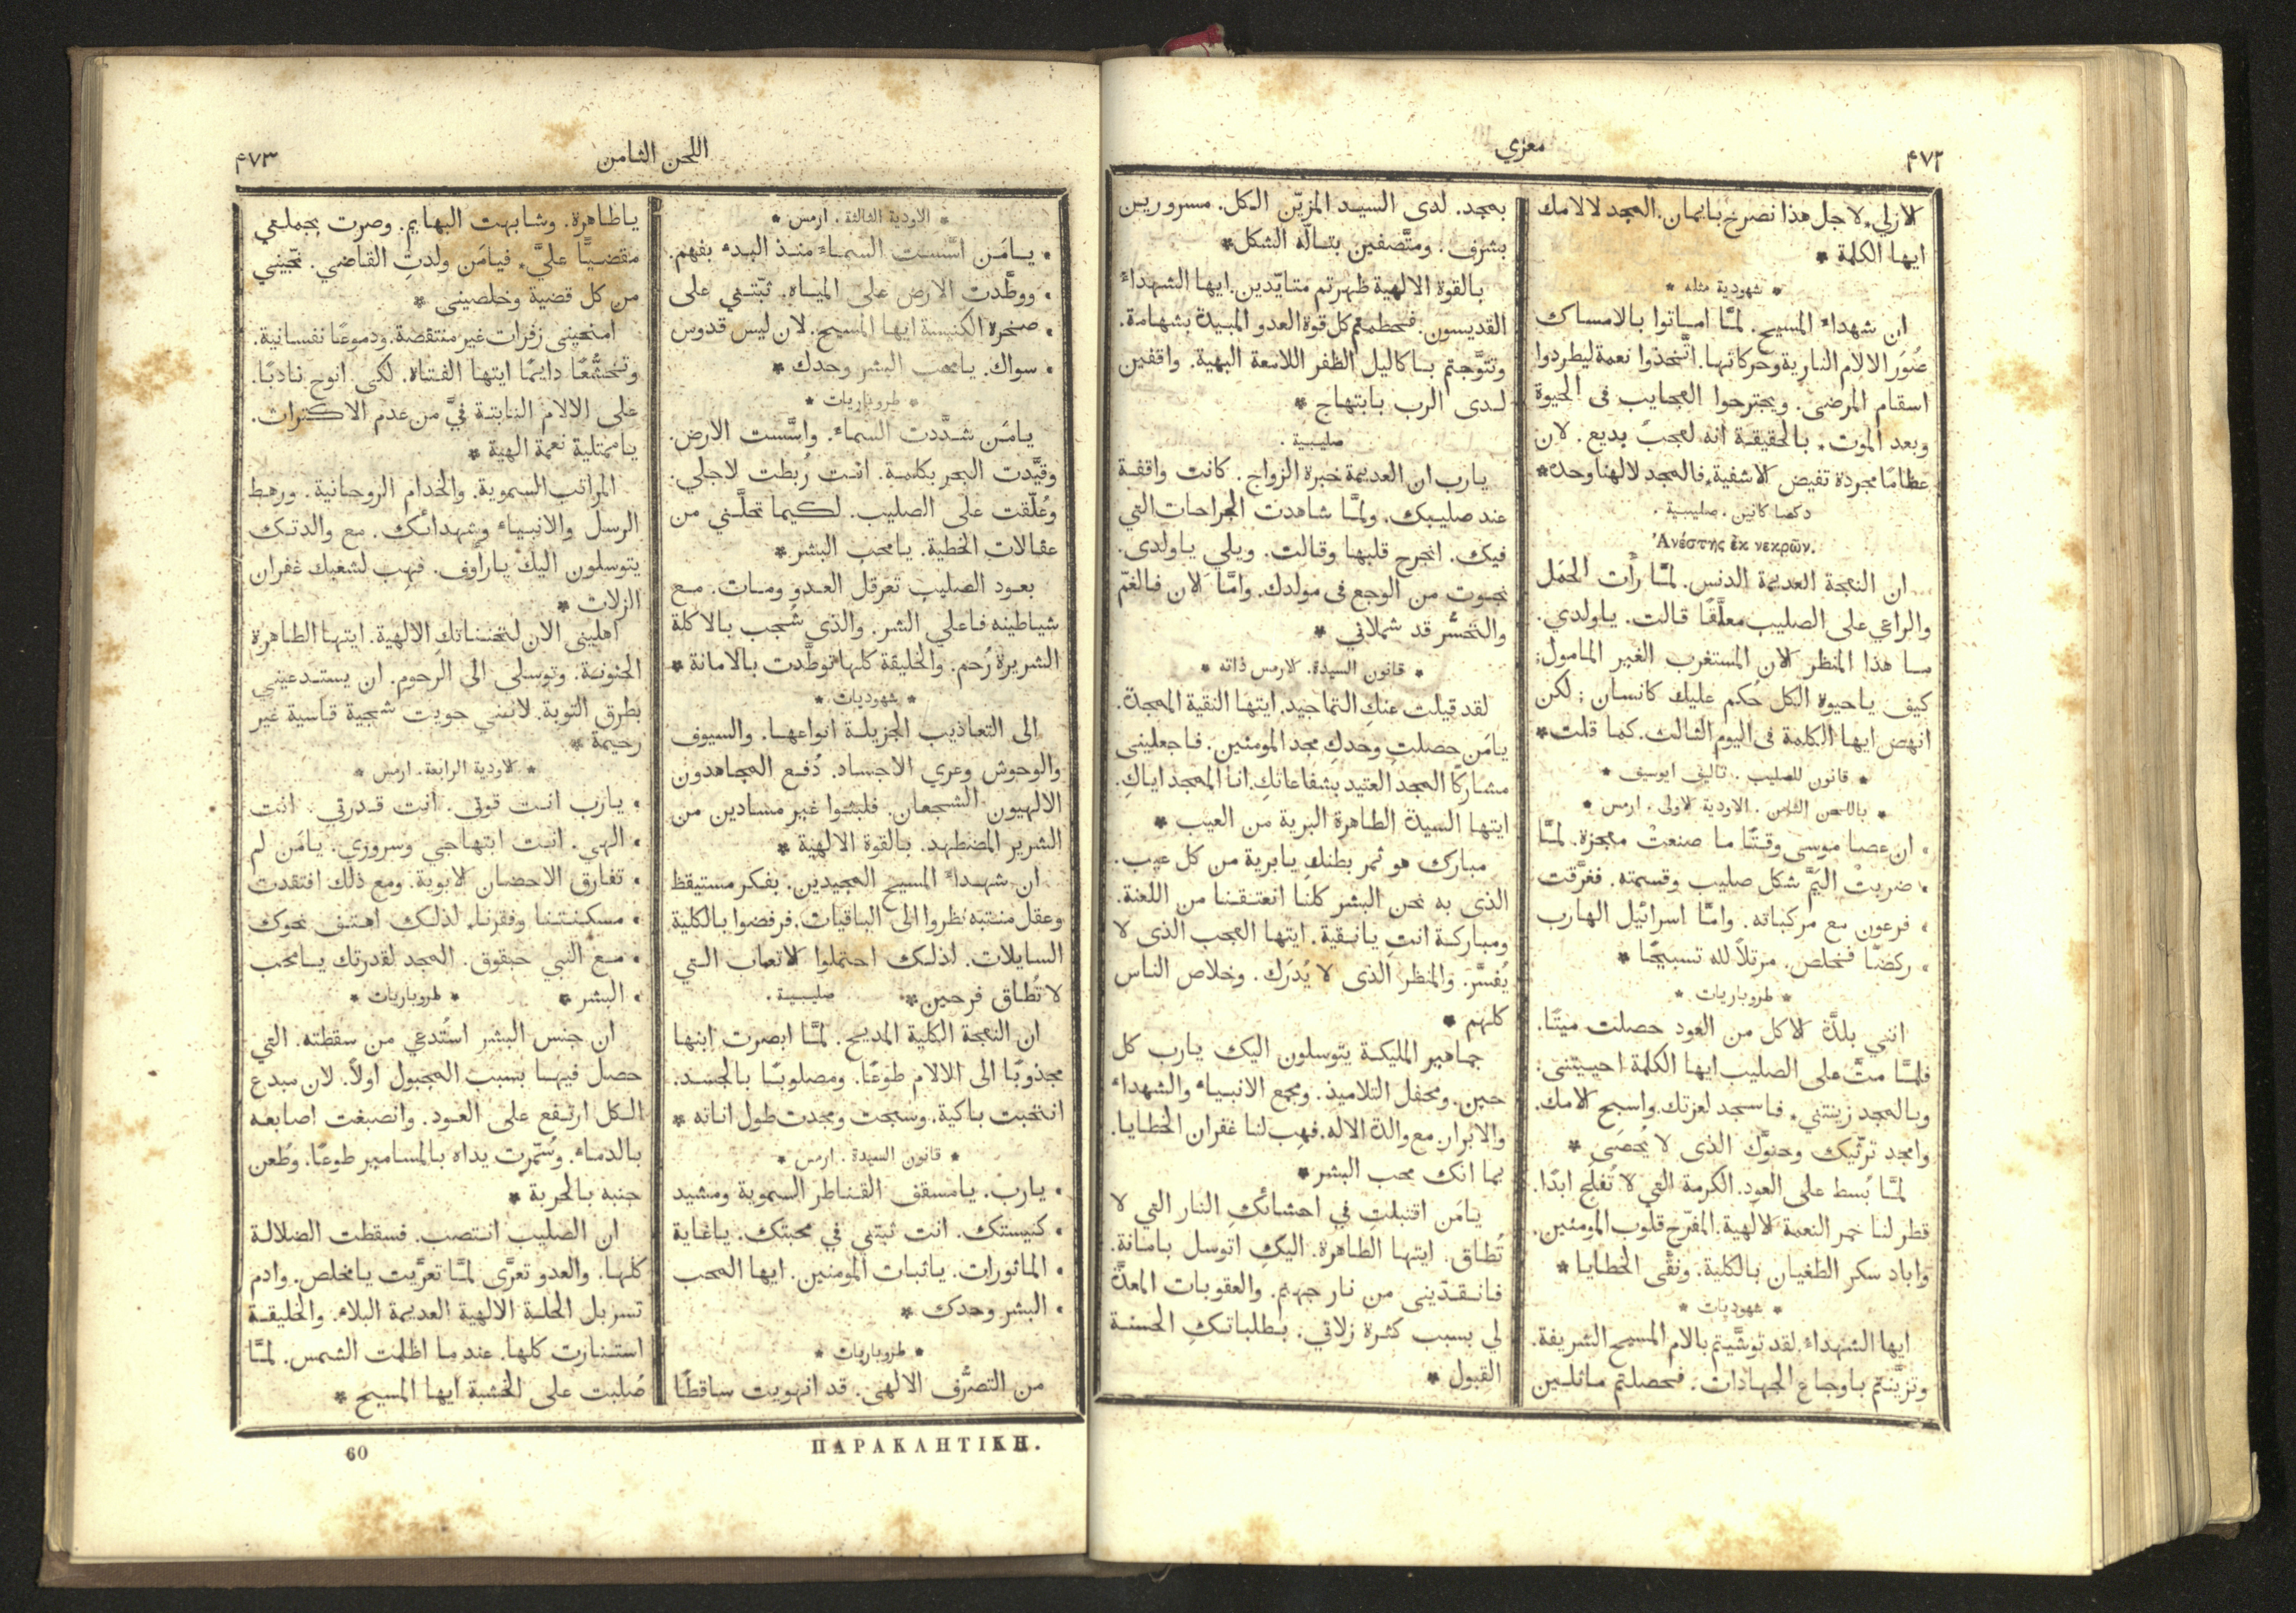 ٤٧٢
معزي
الازلي. لاجل هذا نصرخ بايمان. المجد لالامك
ايها الكلمة *
* شهودية مثله *
ان شهداءَ المسيح. لمَّا اماتوا بالامساك
صُوَر الالام النارية وحركاتها. اتَّخذوا نعمة ليطردوا
اسقام المرضى. ويجترحوا العجايب فى الحيوة
وبعد الموت. بالحقيقة انه لعجبٌ بديع. لان
عظامًا مجردة تفيض الاشفية. فالمجد لالهنا وحده *
دكصا كانين. صليبية.
Ἀνέστης ἐκ νεκρῶν.
ان النعجة العديمة الدنس. لمَّا رأَت الحَمَل
والراعي على الصليب معلَّقًا قالت. ياولدي.
ما هذا المنظر الان المستغرب الغير المامول:
كيف ياحيوة الكل حكم عليك كانسان: لكن
انهض ايها الكلمة فى اليوم الثالث. كما قلت *
* قانون للصليب. تاليف ايوسيف *
* باللحن الثامن. الاودية الاولى. ارمس *
• ان عصا موسى وقتًا ما صنعتْ معجزة. لمَّا
• ضربتْ اليَمَّ شكل صليب وقسمته. فغرَّقت
• فرعون مع مركباته. وامَّا اسرائيل الهارب
• ركضًا فخلص. مرتلاً لله تسبيحًا *
* طروباريات *
انني بلذَّة الاكل من العود حصلت ميتًا.
فلمَّا متَّ على الصليب ايها الكلمة احييتنى:
وبالمجد زينتني. فاسجد لعزتك. واسبح الامك.
وامجد ترثّيك وحنوَّك الذى لا يُحصَى *
لمَّا بُسط على العود. الكرمة التي لا تُفلَح ابدًا.
قطر لنا خمر النعمة الالهية. المفرّح قلوب المومنين.
واباد سكر الطغيان بالكلية. ونقَّى الخطايا *
* شهوديات *
ايها الشهداءُ. لقد توشَّيتم بالام المسيح الشريفة.
وتزيَّنتم باوجاع الجهادات. فحصلتم ماثلين
بمجد. لدى السيد المزيّن الكل. مسرورين
بشرف. ومتَّصفين بتالّه الشكل *
بالقوة الالهية ظهرتم متايّدين. ايها الشهداءُ
القديسون. فحطمتم كل قوة العدو المبيدة بشهامة.
وتتوَّجتم باكاليل الظفر اللامعة البهية. واقفين
لدى الرب بابتهاج *
صليبية.
يارب ان العديمة خبرة الزواج. كانت واقفة
عند صليبك. ولمَّا شاهدت الجراحات التي
فيك. انجرح قلبها وقالت. ويلي ياولدى.
نجوت من الوجع فى مولدك. وامَّا الان فالغمّ
والتحسُّر قد شملاني *
* قانون السيدة. الارمس ذاته *
لقد قيلت عنكِ التماجيد. ايتها النقية الممجدة.
يامَن حصلتِ وحدكِ مجد المومنين. فاجعلينى
مشاركًا المجد العتيد بشفاعاتكِ. انا الممجد اياكِ.
ايتها السيدة الطاهرة البرية من العيب *
مبارك هو ثمر بطنكِ يابرية من كل عيب.
الذى به نحن البشر كلنا انعتقنا من اللعنة.
ومباركة انتِ يانقية. ايتها العجب الذى لا
يُفسَّر. والمنظر الذى لا يُدرَك. وخلاص الناس
كلهم *
جماهير المليكة يتوسلون اليك يارب كل
حين. ومحفل التلاميذ. ومجمع الانبياء والشهداء
والابرار. مع والدة الاله. فهِب لنا غفران الخطايا.
بما انك محب البشر *
يامَن اقتبلتِ في احشائكِ النار التي لا
تُطاق. ايتها الطاهرة. اليكِ اتوسل بامانة.
فانقذينى من نار جهنم. والعقوبات المعدَّة
لي بسبب كثرة زلاتي. بطلباتكِ الحسنة
القبول *
اللحن الثامن
٤٧٣
* الاودية الثالثة. ارمس *
• يامَن اسَّست السماءَ منذ البدء بفهم.
• ووطَّدت الارض على المياه. ثبّتني على
• صخرة الكنيسة ايها المسيح. لان ليس قدوس
• سواك. يامحب البشر وحدك *
* طروباريات *
يامَن شدَّدت السماءَ. واسَّست الارض.
وقيَّدت البحر بكلمة. انت رُبطت لاجلي:
وعُلّقت على الصليب. لكيما تحلَّني من
عقالات الخطية. يامحب البشر *
بعود الصليب تعرقل العدو ومات. مع
شياطينه فاعلي الشر. والذى شُجب بالاكلة
الشريرة رُحم. والخليقة كلها توطَّدت بالامانة *
* شهوديات *
الى التعاذيب الجزيلة انواعها. والسيوف
والوحوش وعري الاجساد. دُفع المجاهدون
الالهيون الشجعان. فلبثوا غير مسادين من
الشرير المضطهد. بالقوة الالهية *
ان شهداءَ المسيح المجيدين. بفكر مستيقظ
وعقل منتبه نظروا الى الباقيات. فرفضوا بالكلية
السايلات. لذلك احتملوا الاتعاب التي
لا تُطاق فرحين *
صليبية.
ان النعجة الكلية المديح. لمَّا ابصرت ابنها
مجذوبًا الى الالام طوعًا. ومصلوبًا بالجسد.
انتحبت باكية. وسبحت ومجدت طول اناته *
* قانون السيدة. ارمس *
• يارب. يامسقف القناطر السموية ومشيد
• كنيستك. انت ثبتني في محبتك. ياغاية
• الماثورات. ياثبات المومنين. ايها المحب
• البشر وحدك *
* طروباريات *
من التصرُّف الالهي. قد انهويت ساقطًا
ياطاهرة. وشابهت البهايم. وصرت بجملتي
منقضيًّا عليَّ. فيامَن ولدتِ القاضي. نجّيني
من كل قضية وخلصينى *
امنحينى زفرات غير منتقصة. ودموعًا نفسانية.
وتخشُّعًا دايمًا ايتها الفتاة. لكى انوح نادبًا.
على الالام النابتة فيَّ من عدم الاكتراث.
ياممتلية نعمة الهية *
المراتب السموية. والخدام الروحانية. ورهط
الرسل والانبياء وشهدائك. مع والدتك
يتوسلون اليك يارأُوف. فهِب لشعبك غفران
الزلات *
اهلينى الان لتحنناتكِ الالهية. ايتها الطاهرة
الحنونة. وتوسلى الى الرحوم. ان يستدعيني
بطرق التوبة. لانني حويت سجية قاسية غير
رحيمة *
* الاودية الرابعة. ارمس *
• يارب انت قوتي. انت قدرتي. انت
• الهي. انت ابتهاجي وسروري. يامَن لم
• تفارق الاحضان الابوية. ومع ذلك افتقدت
• مسكنتنا وفقرنا. لذلك اهتف نحوك
• مع النبي حبقوق. المجد لقدرتك يامحب
• البشر *
* طروباريات *
ان جنس البشر استُدعي من سقطته. التي
حصل فيها بسبب المجبول اولاً. لان مبدع
الكل ارتفع على العود. وانصبغت اصابعه
بالدماء. وسُمّرت يداه بالمسامير طوعًا. وطُعن
جنبه بالحربة *
ان الصليب انتصب. فسقطت الضلالة
كلها. والعدو تعرَّى لمَّا تعرَّيت يامخلص. وادم
تسربل الحلة الالهية العديمة البلاء. والخليقة
استنارت كلها. عند ما اظلمت الشمس. لمَّا
صُلبت على الخشبة ايها المسيح *
ΠΑΡΑΚΛΗΤΙΚΗ.
60